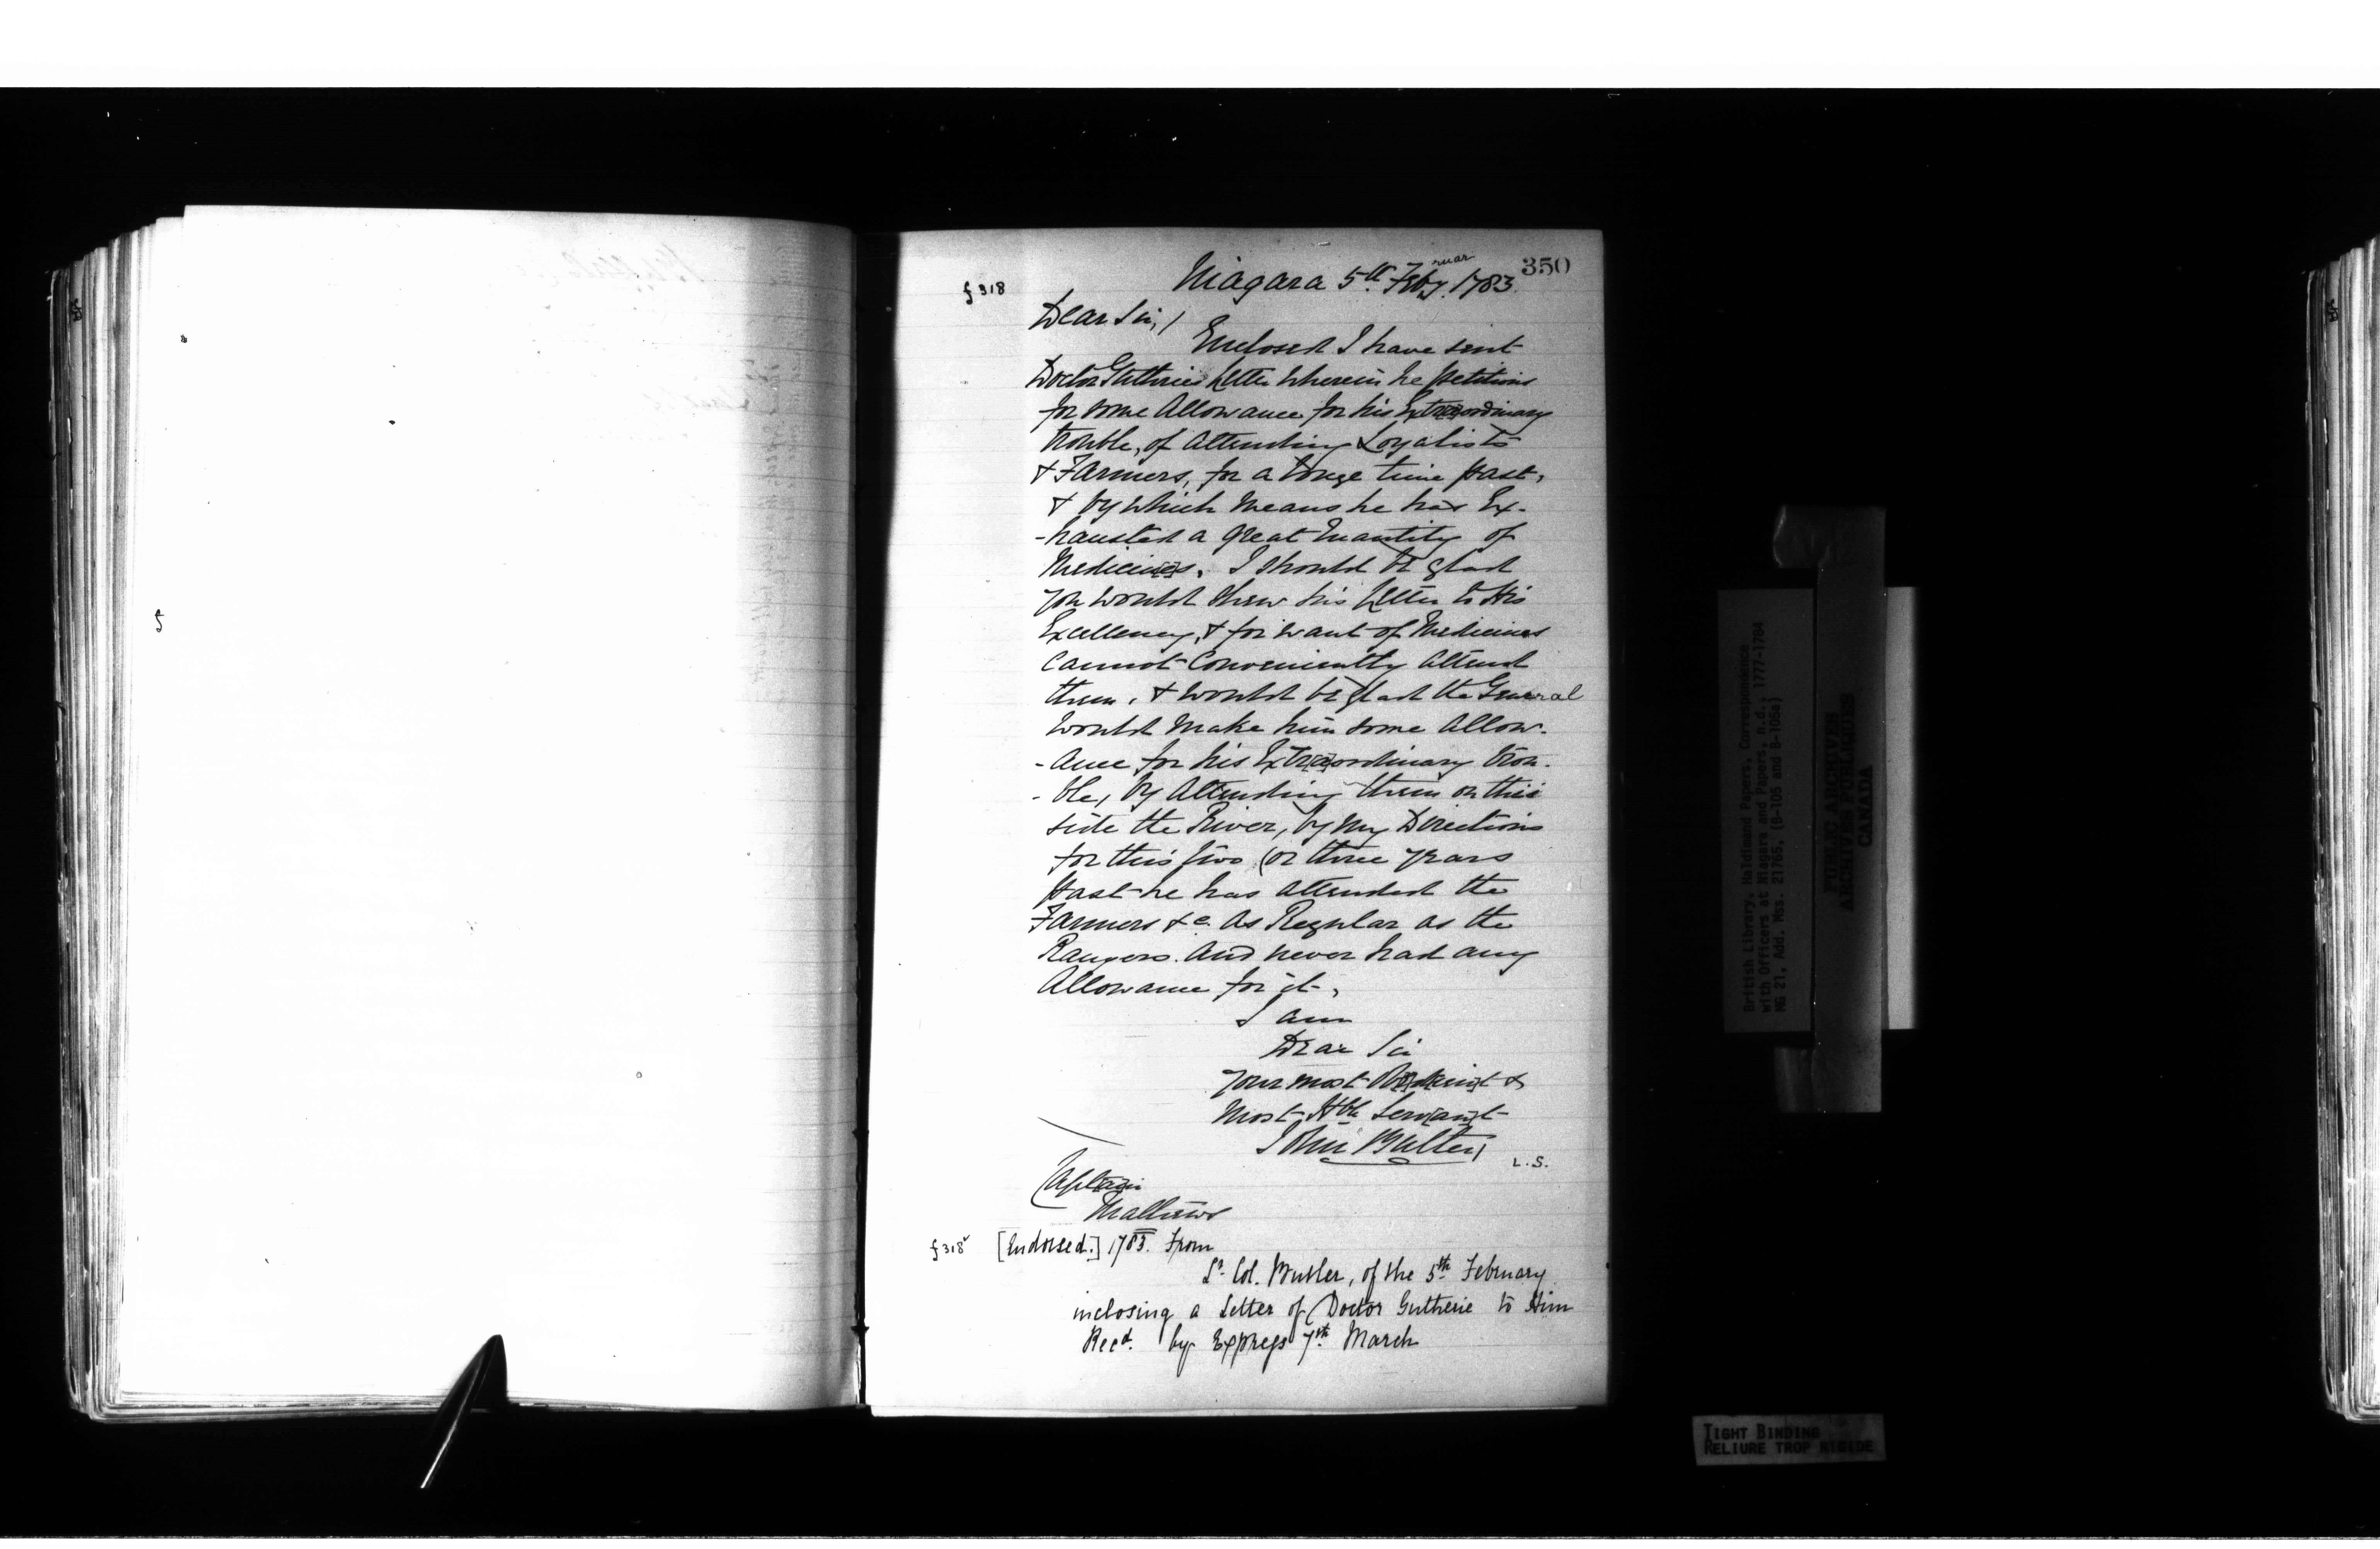 350
f 318
Niagara 5th Feb'ruar'y. 1783.
Dear Sir, /
Enclosed I have sent
Doctor Guthries Letter wherein he petitions
for some Allowance for his Extraordinary
trouble, of Attending Loyalists
& Farmers, for a longe time past,
& by which Means he has Ex-
-hausted a great Quantity of
Medicines, I should be glad
you would shew his Letter to His
Excellency, & for want of Medicines
Cannot Conveniently Attend
them, & would be glad the General
would Make him some Allow-
-ance for his Extr[a]ordinary trou-
-ble, by Attending them on this
side the River, by my Directions
for this two (or three years
past he has Attended the
Farmers &c. As Regular as the
Rangers. And never had any
Allowance for it,
I am
Dear Sir
Your most Ob[e]d[ien]t &
Most Hble Serv[an]t
John Butler
L.S.
Captain
Mathews
f 318v [Endorsed.] 1783. From
Lt. Col. Butler, of the 5th February
inclosing a Letter of Doctor Gutherie to Him
Recd. by Express 7th. March
5
British Library. Haldimand Papers, Correspondence
with Officers at Niagara and Papers, n.d., 1777-1784
MG 21, Add. Mss. 21765, (B-105 and B-105a)
PUBLIC ARCHIVES
ARCHIVES PUBLIQUES
CANADA
TIGHT BINDING
RELIURE TROP RIGIDE